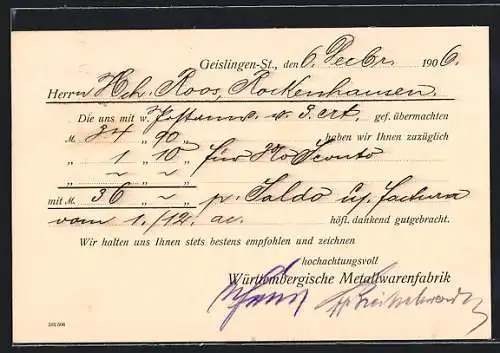 Geislingen-St., den 6. Decbr. 1906.
Herrn Hch. Roos, Rockenhausen.
Die uns mit w. Postanw. v. 3. crt. gef. übermachten
M. 34 „ 90 haben wir Ihnen zuzüglich
„ 1 „ 10 für 3% Sconto
„ ~ „ ~
mit M. 36 „ ~ p. Saldo uns. Factura
vom 1./12. ac. höfl. dankend gutgebracht.
Wir halten uns Ihnen stets bestens empfohlen und zeichnen
hochachtungsvoll
Württembergische Metallwarenfabrik